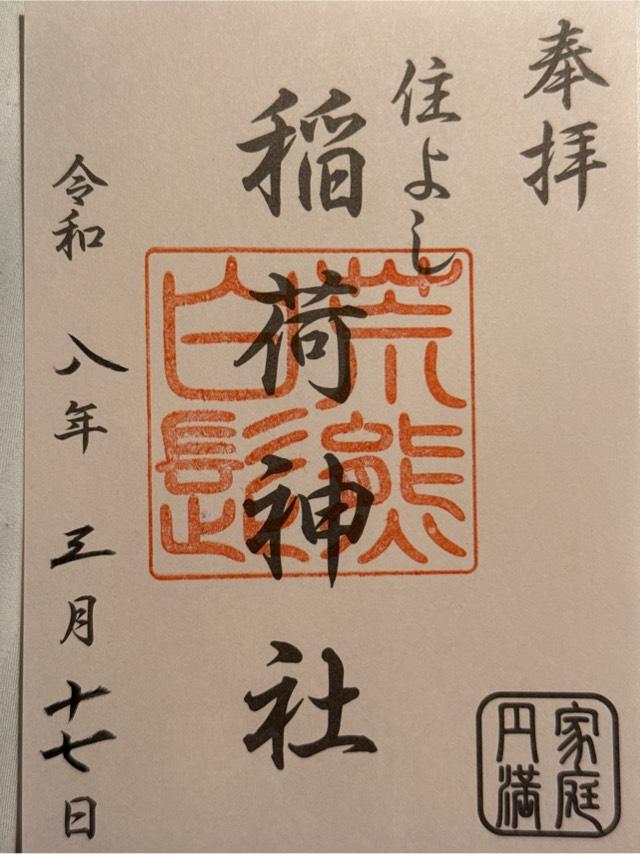 奉拝
住よし
稲荷神社
荒熊
白髭
令和八年三月十七日
家庭
円満